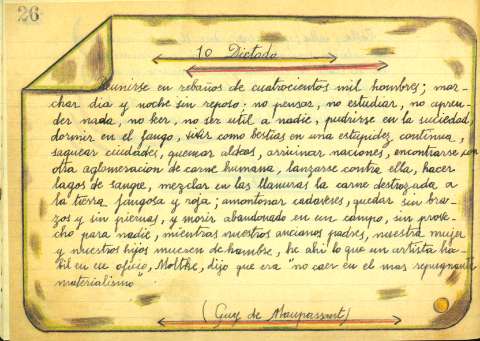 26
10 Dictado
Reunirse en rebaños de cuatrocientos mil hombres; mar-
char dia y noche sin reposo; no pensar, no estudiar, no apren-
der nada, no leer, no ser util a nadie, pudrirse en la suciedad,
dormir en el fango, vivir como bestias en una estupidez continua,
saquear ciudades, quemar aldeas, arruinar naciones, encontrarse con
otra aglomeración de carne humana, lanzarse contra ella, hacer
lagos de sangre, mezclar en las llanuras la carne destrozada a
la tierra fangosa y roja; amontonar cadaveres, quedar sin bra-
zos y sin piernas, y morir abandonado en un campo, sin prove-
cho para nadie, mientras nuestros ancianos padres, nuestra mujer
y nuestros hijos mueren de hambre, he ahi lo que un artista ha-
bil en su oficio, Moltke, dijo que era "no caer en el mas repugnante
materialismo".
(Guy de Maupassant)